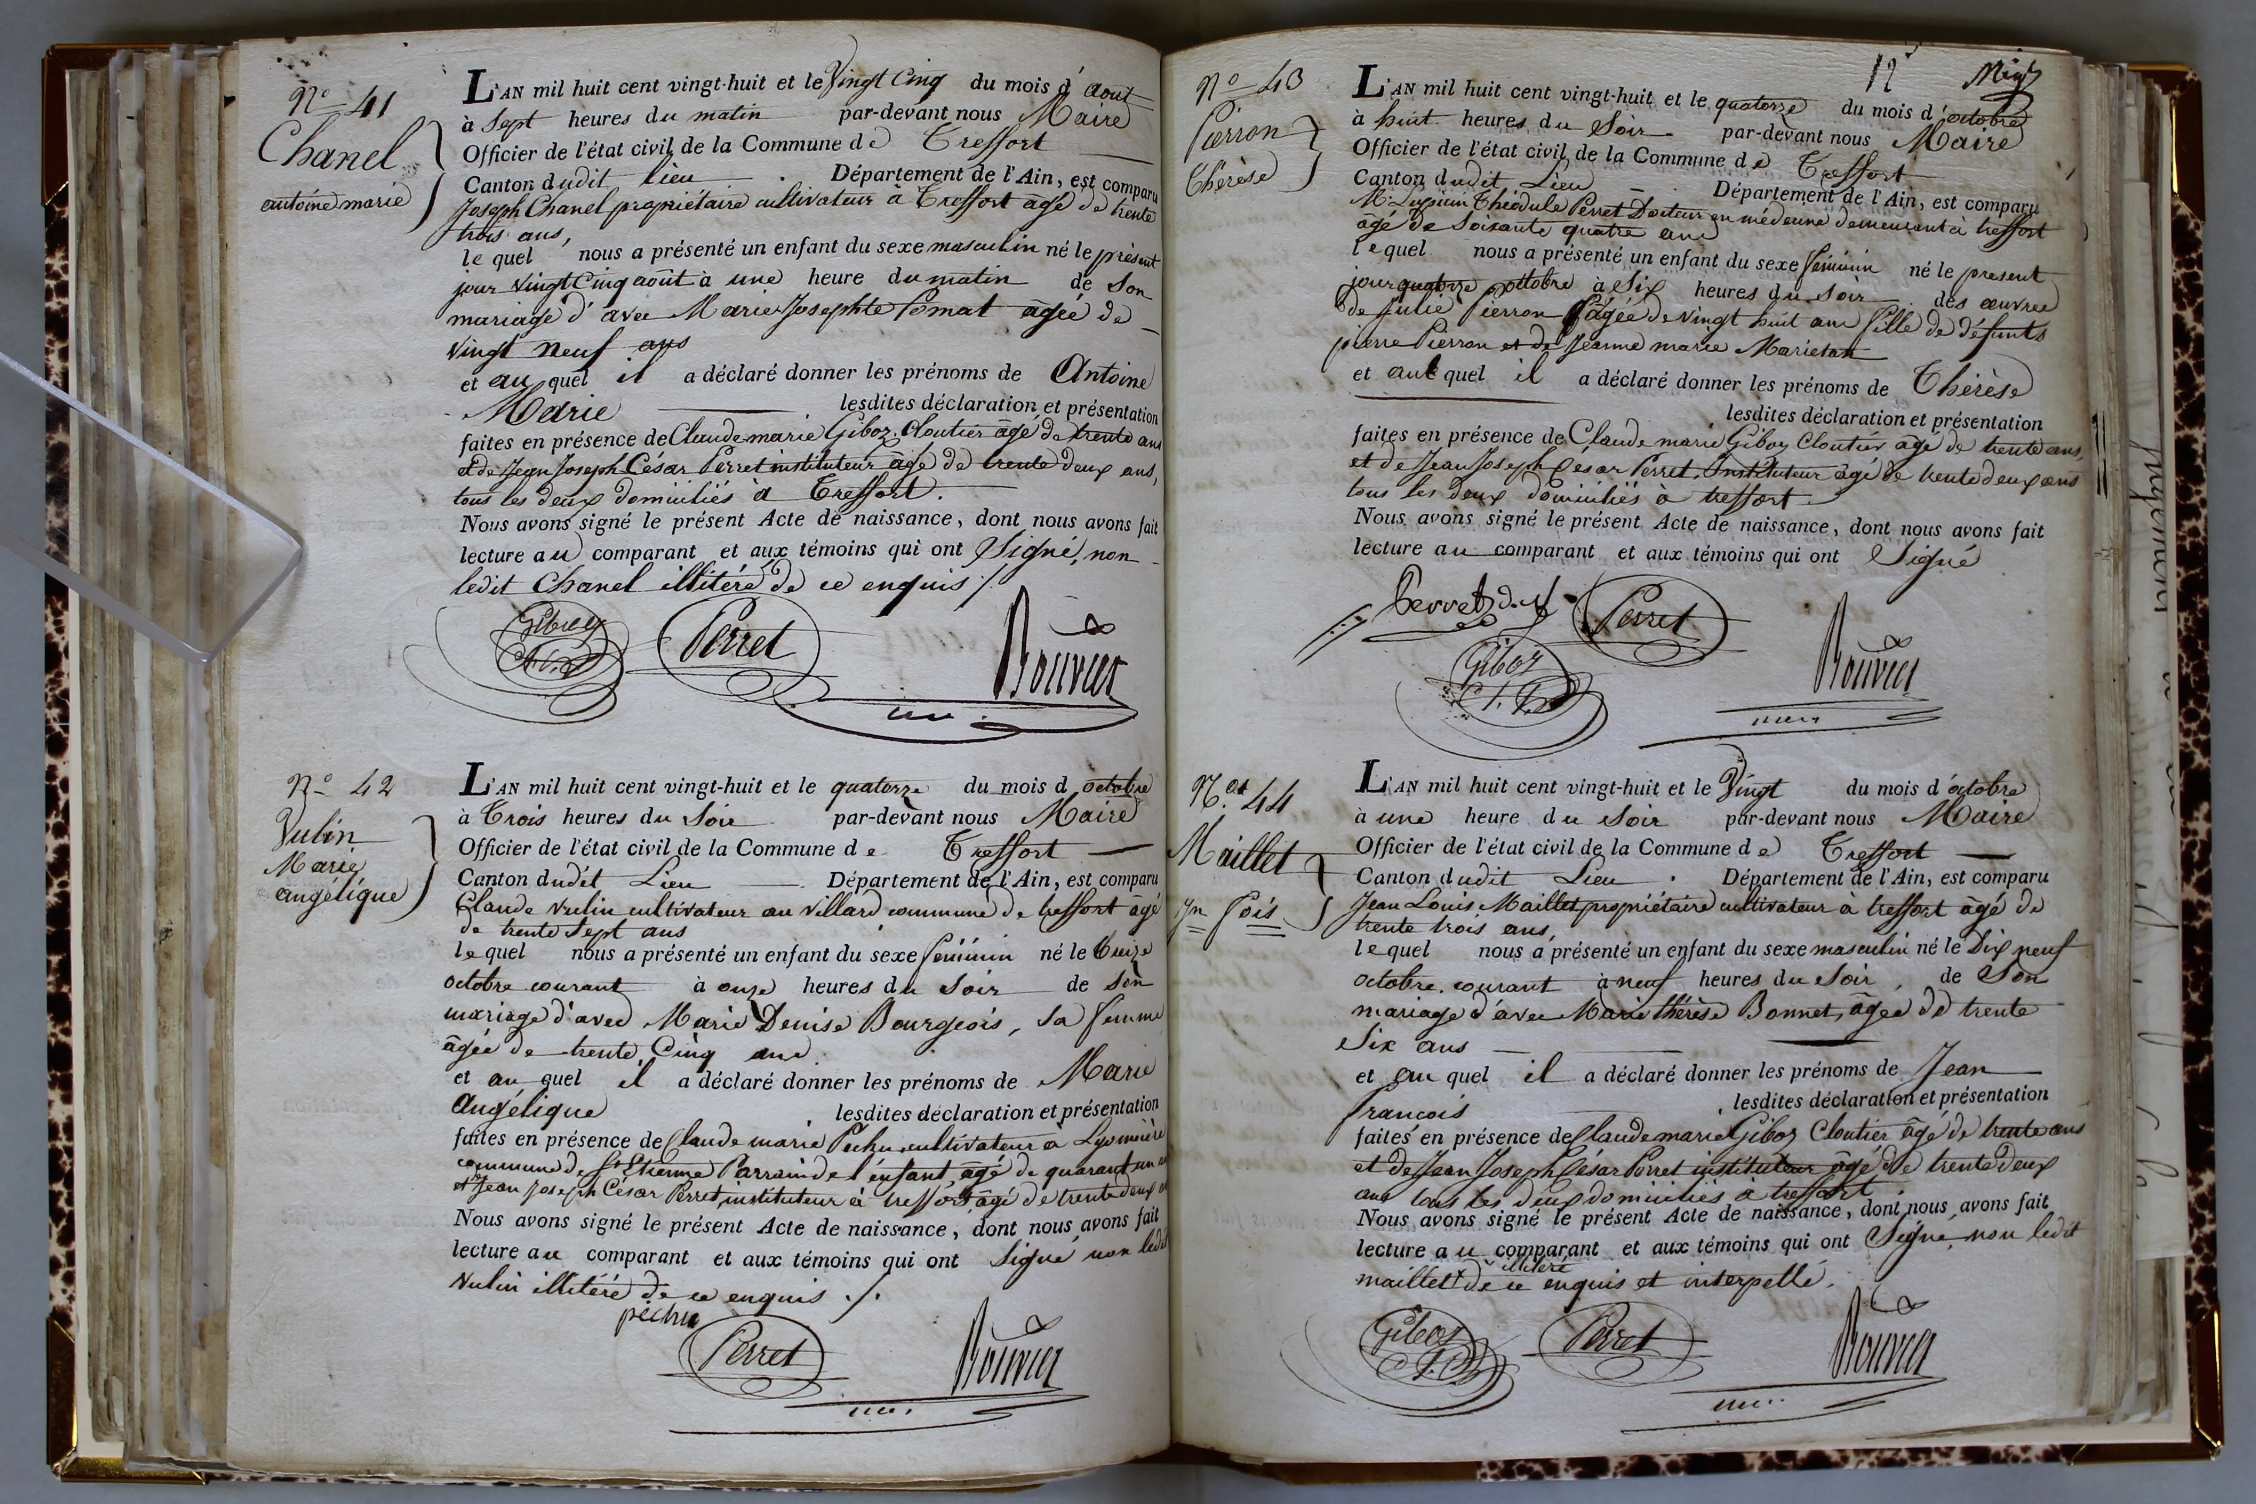 N.o 41
Chanel
antoine marie
L'AN mil huit cent vingt-huit et le Vingt Cinq du mois d'août
à Sept heures du matin par-devant nous Maire
Officier de l'état civil de la Commune de Treffort
Canton dudit lieu. Département de l'Ain, est comparu
Joseph Chanel propriétaire cultivateur à Treffort âgé de trente
trois ans,
lequel nous a présenté un enfant du sexe masculin né le présent
jour vingt Cinq août à une heure du matin de Son
mariage d'avec Marie Josephte Pomat âgée de
Vingt Neuf ans
et au quel il a déclaré donner les prénoms de Antoine
Marie lesdites déclaration et présentation
faites en présence de Claude marie Giboz Cloutier âgé de trente ans
et de Jean Joseph César Perret instituteur âgé de trente deux ans,
tous les deux domiciliés à Treffort.
Nous avons signé le présent Acte de naissance, dont nous avons fait
lecture au comparant et aux témoins qui ont Signé, non
ledit Chanel illitéré de ce enquis ./.
Giboz
Perret
Bouvier
N.o 42
Vulin
Marie
angélique
L'AN mil huit cent vingt-huit et le quatorze du mois d octobre
à Trois heures du Soir par-devant nous Maire
Officier de l'état civil de la Commune de Treffort
Canton dudit Lieu Département de l'Ain, est comparu
Claude Vulin cultivateur au Villard commune de treffort âgé
de trente Sept ans
lequel nous a présenté un enfant du sexe féminin né le treize
octobre courant à onze heures du Soir de son
mariage d'avec Marie Denise Bourgeois, sa femme
âgée de trente Cinq ans.
et au quel il a déclaré donner les prénoms de Marie
Angélique lesdites déclaration et présentation
faites en présence de Claude marie Pechu cultivateur à Lyonnière
commune de St Etienne Parrain de l'enfant, âgé de quarant un
et Jean Joseph César Perret, instituteur à treffort âgé de trente deux
Nous avons signé le présent Acte de naissance, dont nous avons fait
lecture au comparant et aux témoins qui ont Signé non ledit
Vulin illitéré de ce enquis ./.
péchu
Perret
Bouvier
12
N.o 43
Pierron
Thérèse
L'AN mil huit cent vingt-huit et le quatorze du mois d'octobre
à huit heures du Soir par-devant nous Maire
Officier de l'état civil de la Commune de Treffort
Canton dudit Lieu. Département de l'Ain, est comparu
M. Théodule Perret Docteur en médecine demeurant à treffort
âgé de Soixante quatre ans
lequel nous a présenté un enfant du sexe féminin né le present
jour quatorze octobre à Six heures du Soir des œuvres
de Julie Pierron âgée de Vingt huit ans fille de défunts
pierre Pierron et de Jeanne marie
et au quel il a déclaré donner les prénoms de Thérèse
lesdites déclaration et présentation
faites en présence de Claude marie Giboz Cloutier âgé de trente ans,
et de Jean Joseph César Perret, Instituteur âgé de trente deux ans
tous les deux domiciliés à treffort
Nous avons signé le présent Acte de naissance, dont nous avons fait
lecture au comparant et aux témoins qui ont Signé
Perret d. M
Perret
Giboz
Bouvier
N.o 44
Maillet
Jn fois
L'AN mil huit cent vingt-huit et le Vingt du mois d'octobre
à une heure du Soir par-devant nous Maire
Officier de l'état civil de la Commune de Treffort
Canton dudit Lieu. Département de l'Ain, est comparu
Jean Louis Maillet, propriétaire cultivateur à treffort âgé de
trente trois ans,
lequel nous a présenté un enfant du sexe masculin né le Dix neuf
octobre courant à neuf heures du Soir, de Son
mariage d'avec Marie thérèse Bonnet, âgée de trente
Six ans
et au quel il a déclaré donner les prénoms de Jean
francois lesdites déclaration et présentation
faites en présence de Claude marie Giboz Cloutier âgé de trente ans
et de Jean Joseph César Perret instituteur âgé de trente deux
ans tous les deux domiciliés à treffort
Nous avons signé le présent Acte de naissance, dont nous avons fait
lecture au comparant et aux témoins qui ont Signé, non ledit
maillet illitéré de ce enquis et interpellé.
Giboz
Perret
Bouvier